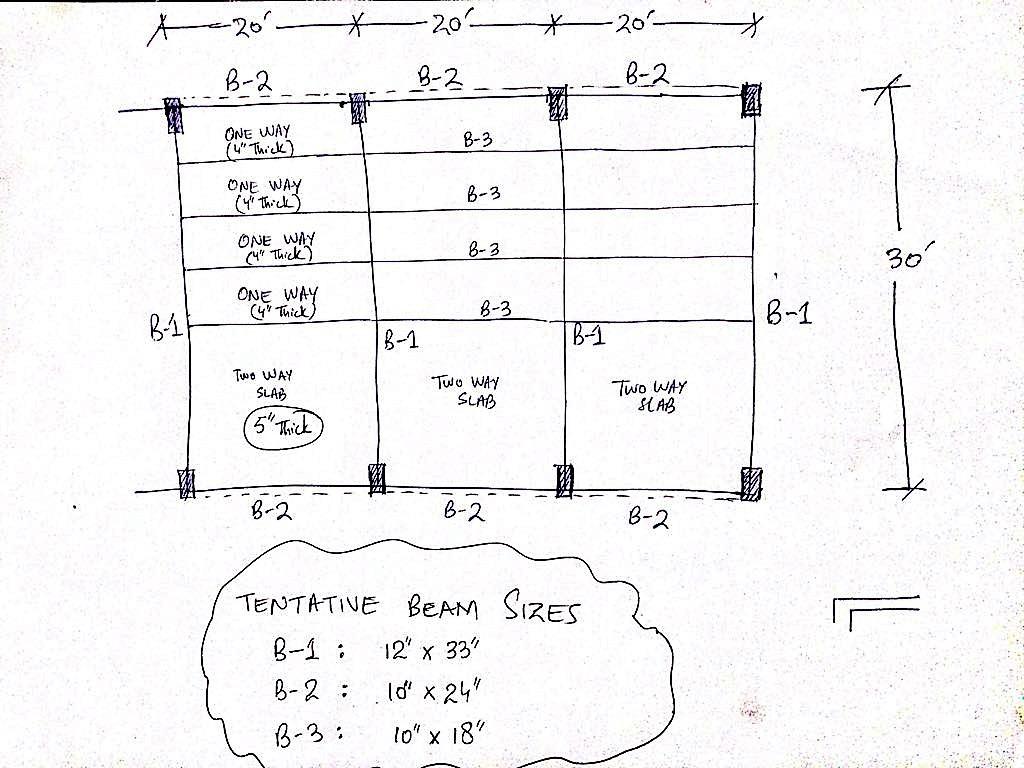 20' 20' 20'
B-2 B-2 B-2
ONE WAY
(4" Thick)
B-3
ONE WAY
(4" Thick)
B-3
ONE WAY
(4" Thick)
B-3
30'
ONE WAY
(4" Thick)
B-3
B-1 B-1 B-1 B-1
TWO WAY
SLAB
5" Thick
TWO WAY
SLAB
TWO WAY
SLAB
B-2 B-2 B-2
TENTATIVE BEAM SIZES
B-1 : 12" x 33"
B-2 : 10" x 24"
B-3 : 10" x 18"